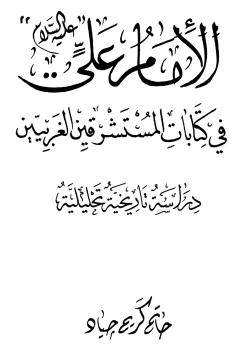 الإمام علي "عليه السلام"
في كتابات المستشرقين الغربيين
دراسة تاريخية تحليلية
حاتم كريم جياد